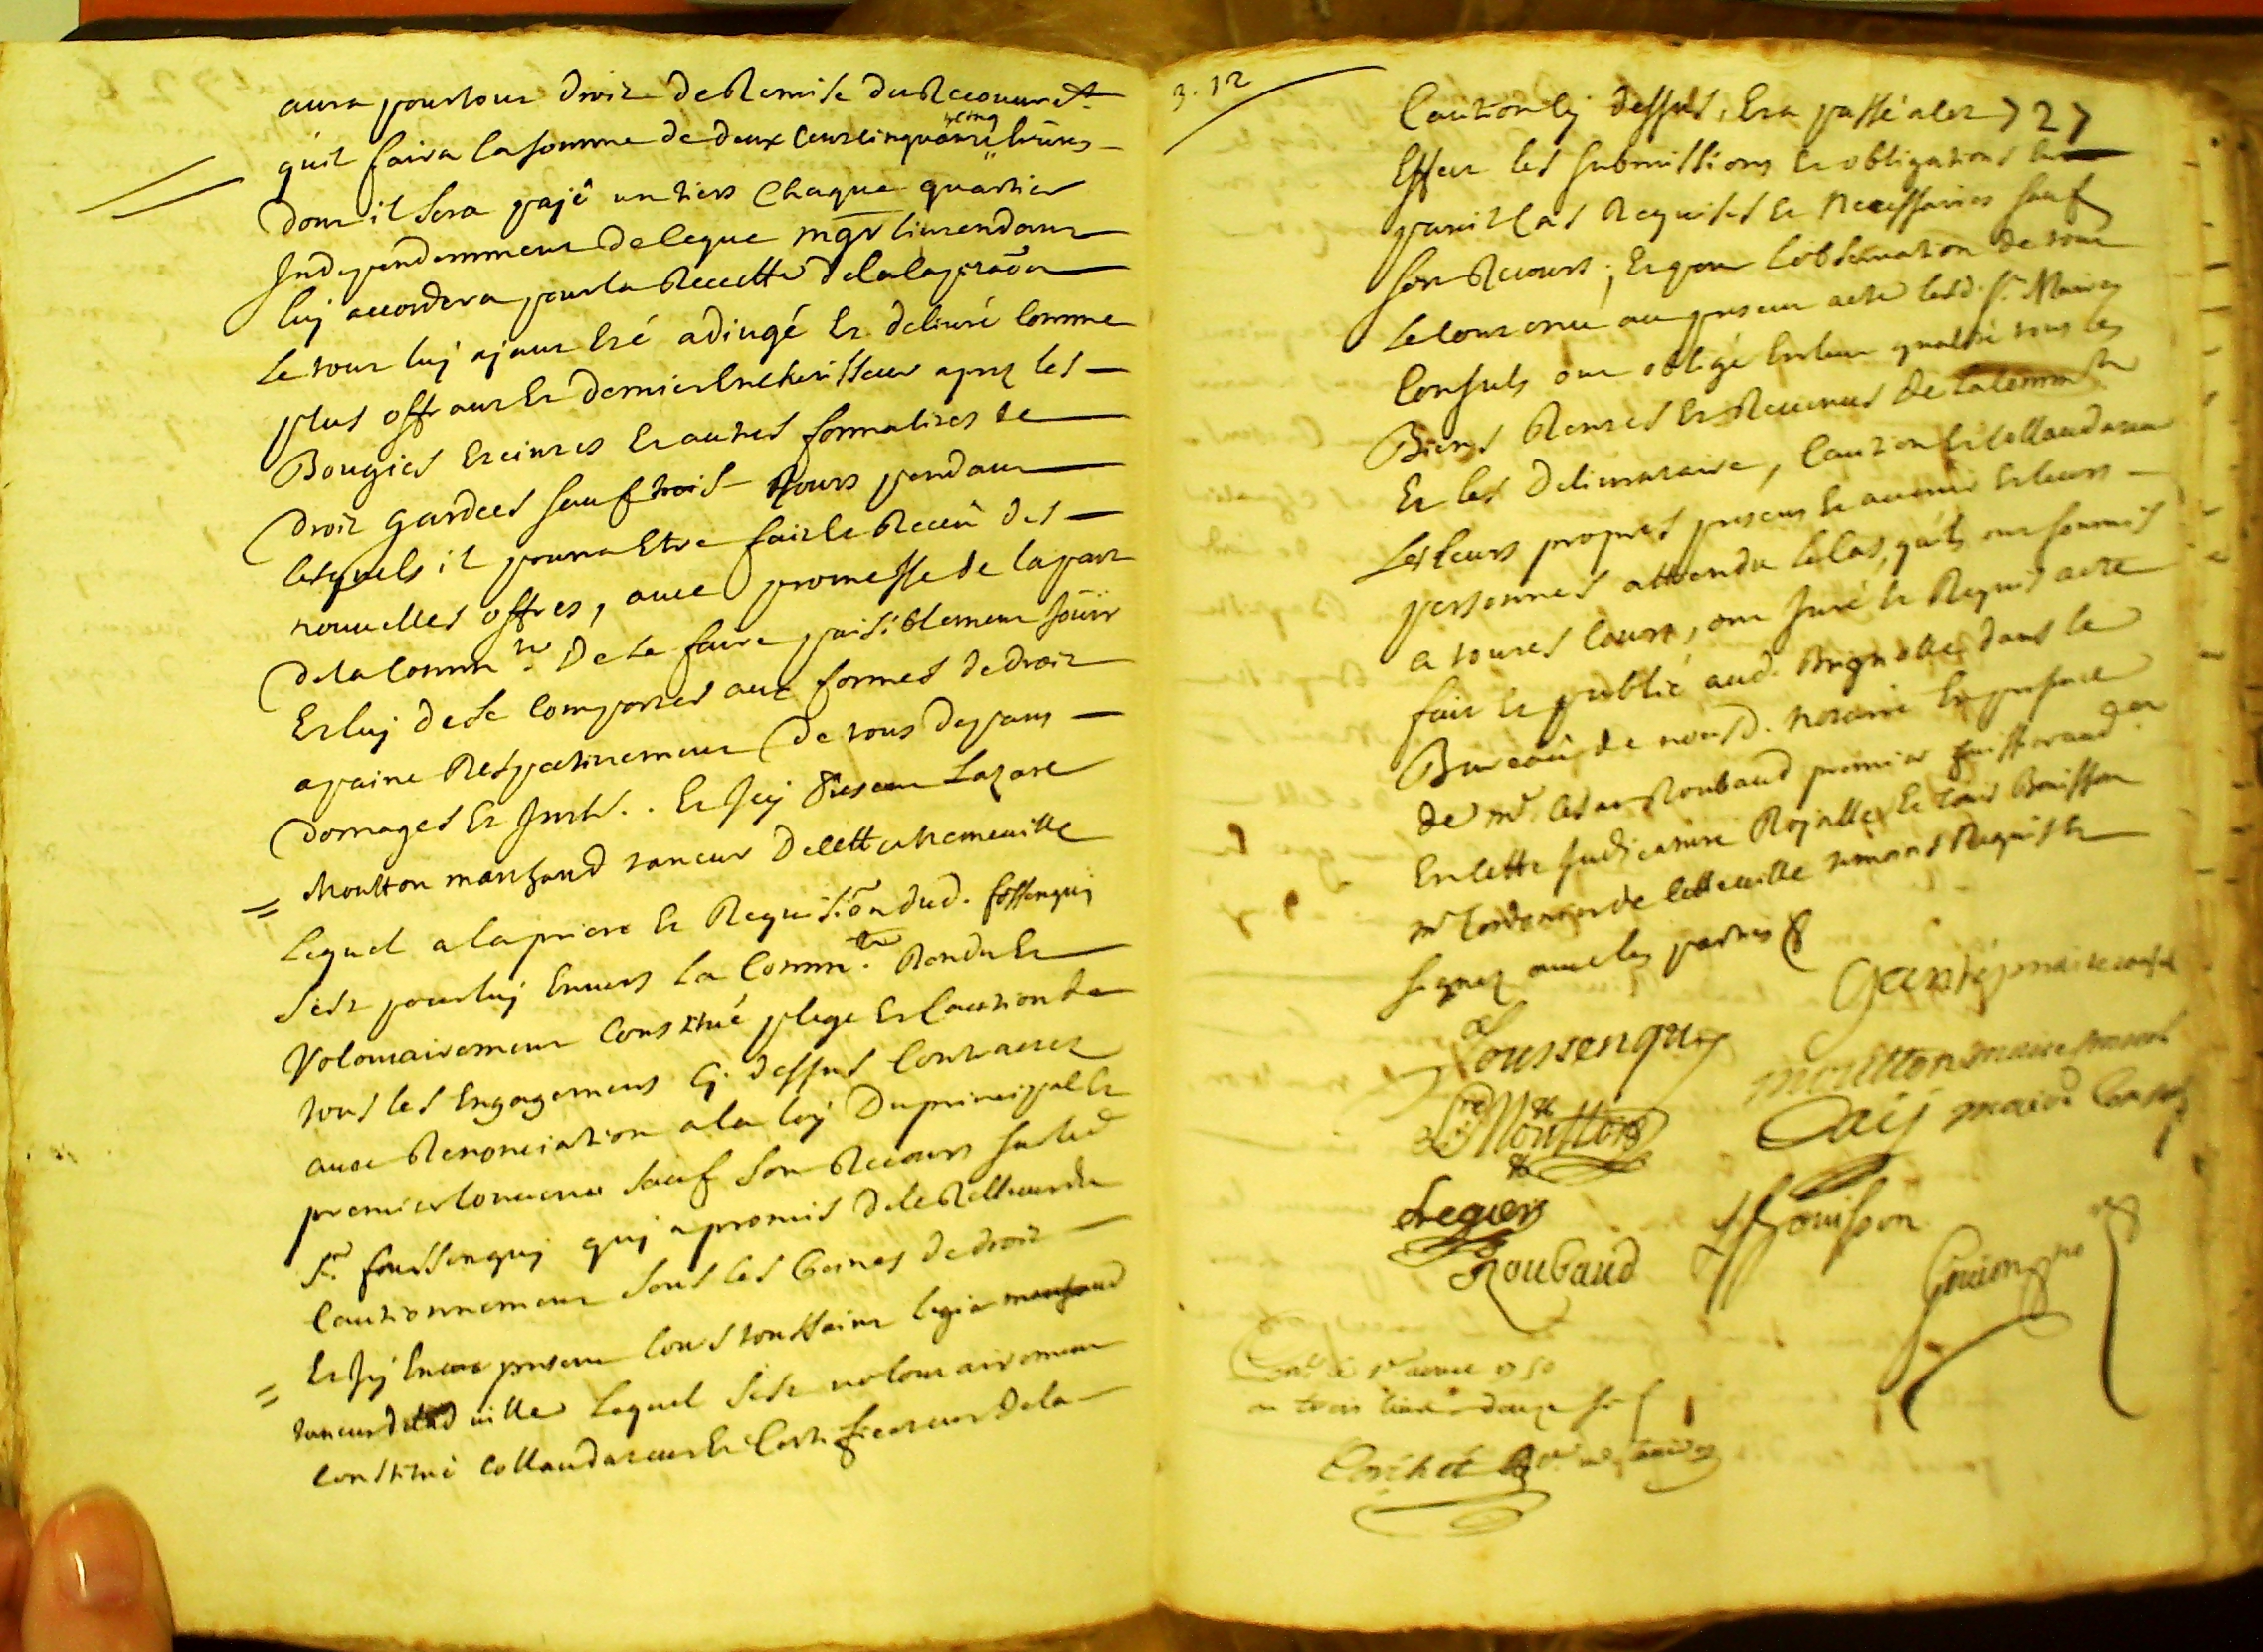 aura pour tout droit de Remise du Recouvret
quil faira la somme de deux Cent cinquante cinq livres
dont il sera payé un tiers Chaque quartier
Independemment de ce que mgr lintendant
luy accordera pour la Recette de la Capitaõn
Le tout luy ayant Eté adiugé Et deliuré Comme
plus offrant Et dernier Encherisseur aprez les
Bougies Eteintes Et autres formalites de
droit gardees sauf trois Jours pendant
lesquels il pourra Etre fait Et Receu des
nouvelles offres, avec promesse de la part
de la Commté. De Le faire paisiblement Jouir
Et luy de se Comporter aux formes de droit
a paine Respectivement de tous depans
domages Et Jnth. . Et Jcy presant Lazare
Moutton marchand tanneur de cette meme ville
Lequel a la priere Et Requisiõn dud. fossenquy
sest pour luy Envers la Commté. Rendu Et
Volontairement Constitué plege Et Caution de
tous les Engagemens cy dessus Contractes
avec Renonciation a la loy du principal Et
premier Convenu sauf son Recours sur led
Sr. foussenquy quy a promis de le Relleuer du
Cautionnement sous les Peines de droit
Et Jcy Encore presant Louis toussaint legier marchand
tanneur de lad ville Lequel sest volontairement
Constitué Collaudateur Et Certificateur de la
3.12
Caution cy dessus, Et a passé a cet 727
Effet les submissions Et obligations En
pareil Cas Requises Et Necessaires sauf
son Recours; Et pour Lobservation de tout
Le Contenu au present acte lesd. Srs. Maires
Consuls ont obligé En leur qualité tous les
Biens Rentes Et Revenus de la Commté
Et les delivrataire, Caution Et Collaudateur
Les leurs propres presens Et avenir Et leurs
personnes attendu Le Cas, quils ont soumis
a toutes Cours, ont Juré Et Requis acte
fait Et publié aud. Brignolle dans le
Bureau de nousd. notaire En presance
de me. Cesar Roubaud premier huissier aud
En cette Judicature Royalle Et Louis Bouisson
me Cordonnier de cette ville temoins Requis Et
signez avec les parties
Garst maire consul
foussenquy
moutton maire consul
Lre Moutton
Oacy maire Consul
Legier
Roubaud
Bouisson
Gouion no
Con.lé le 1er 1750
R. trois livres douze sols